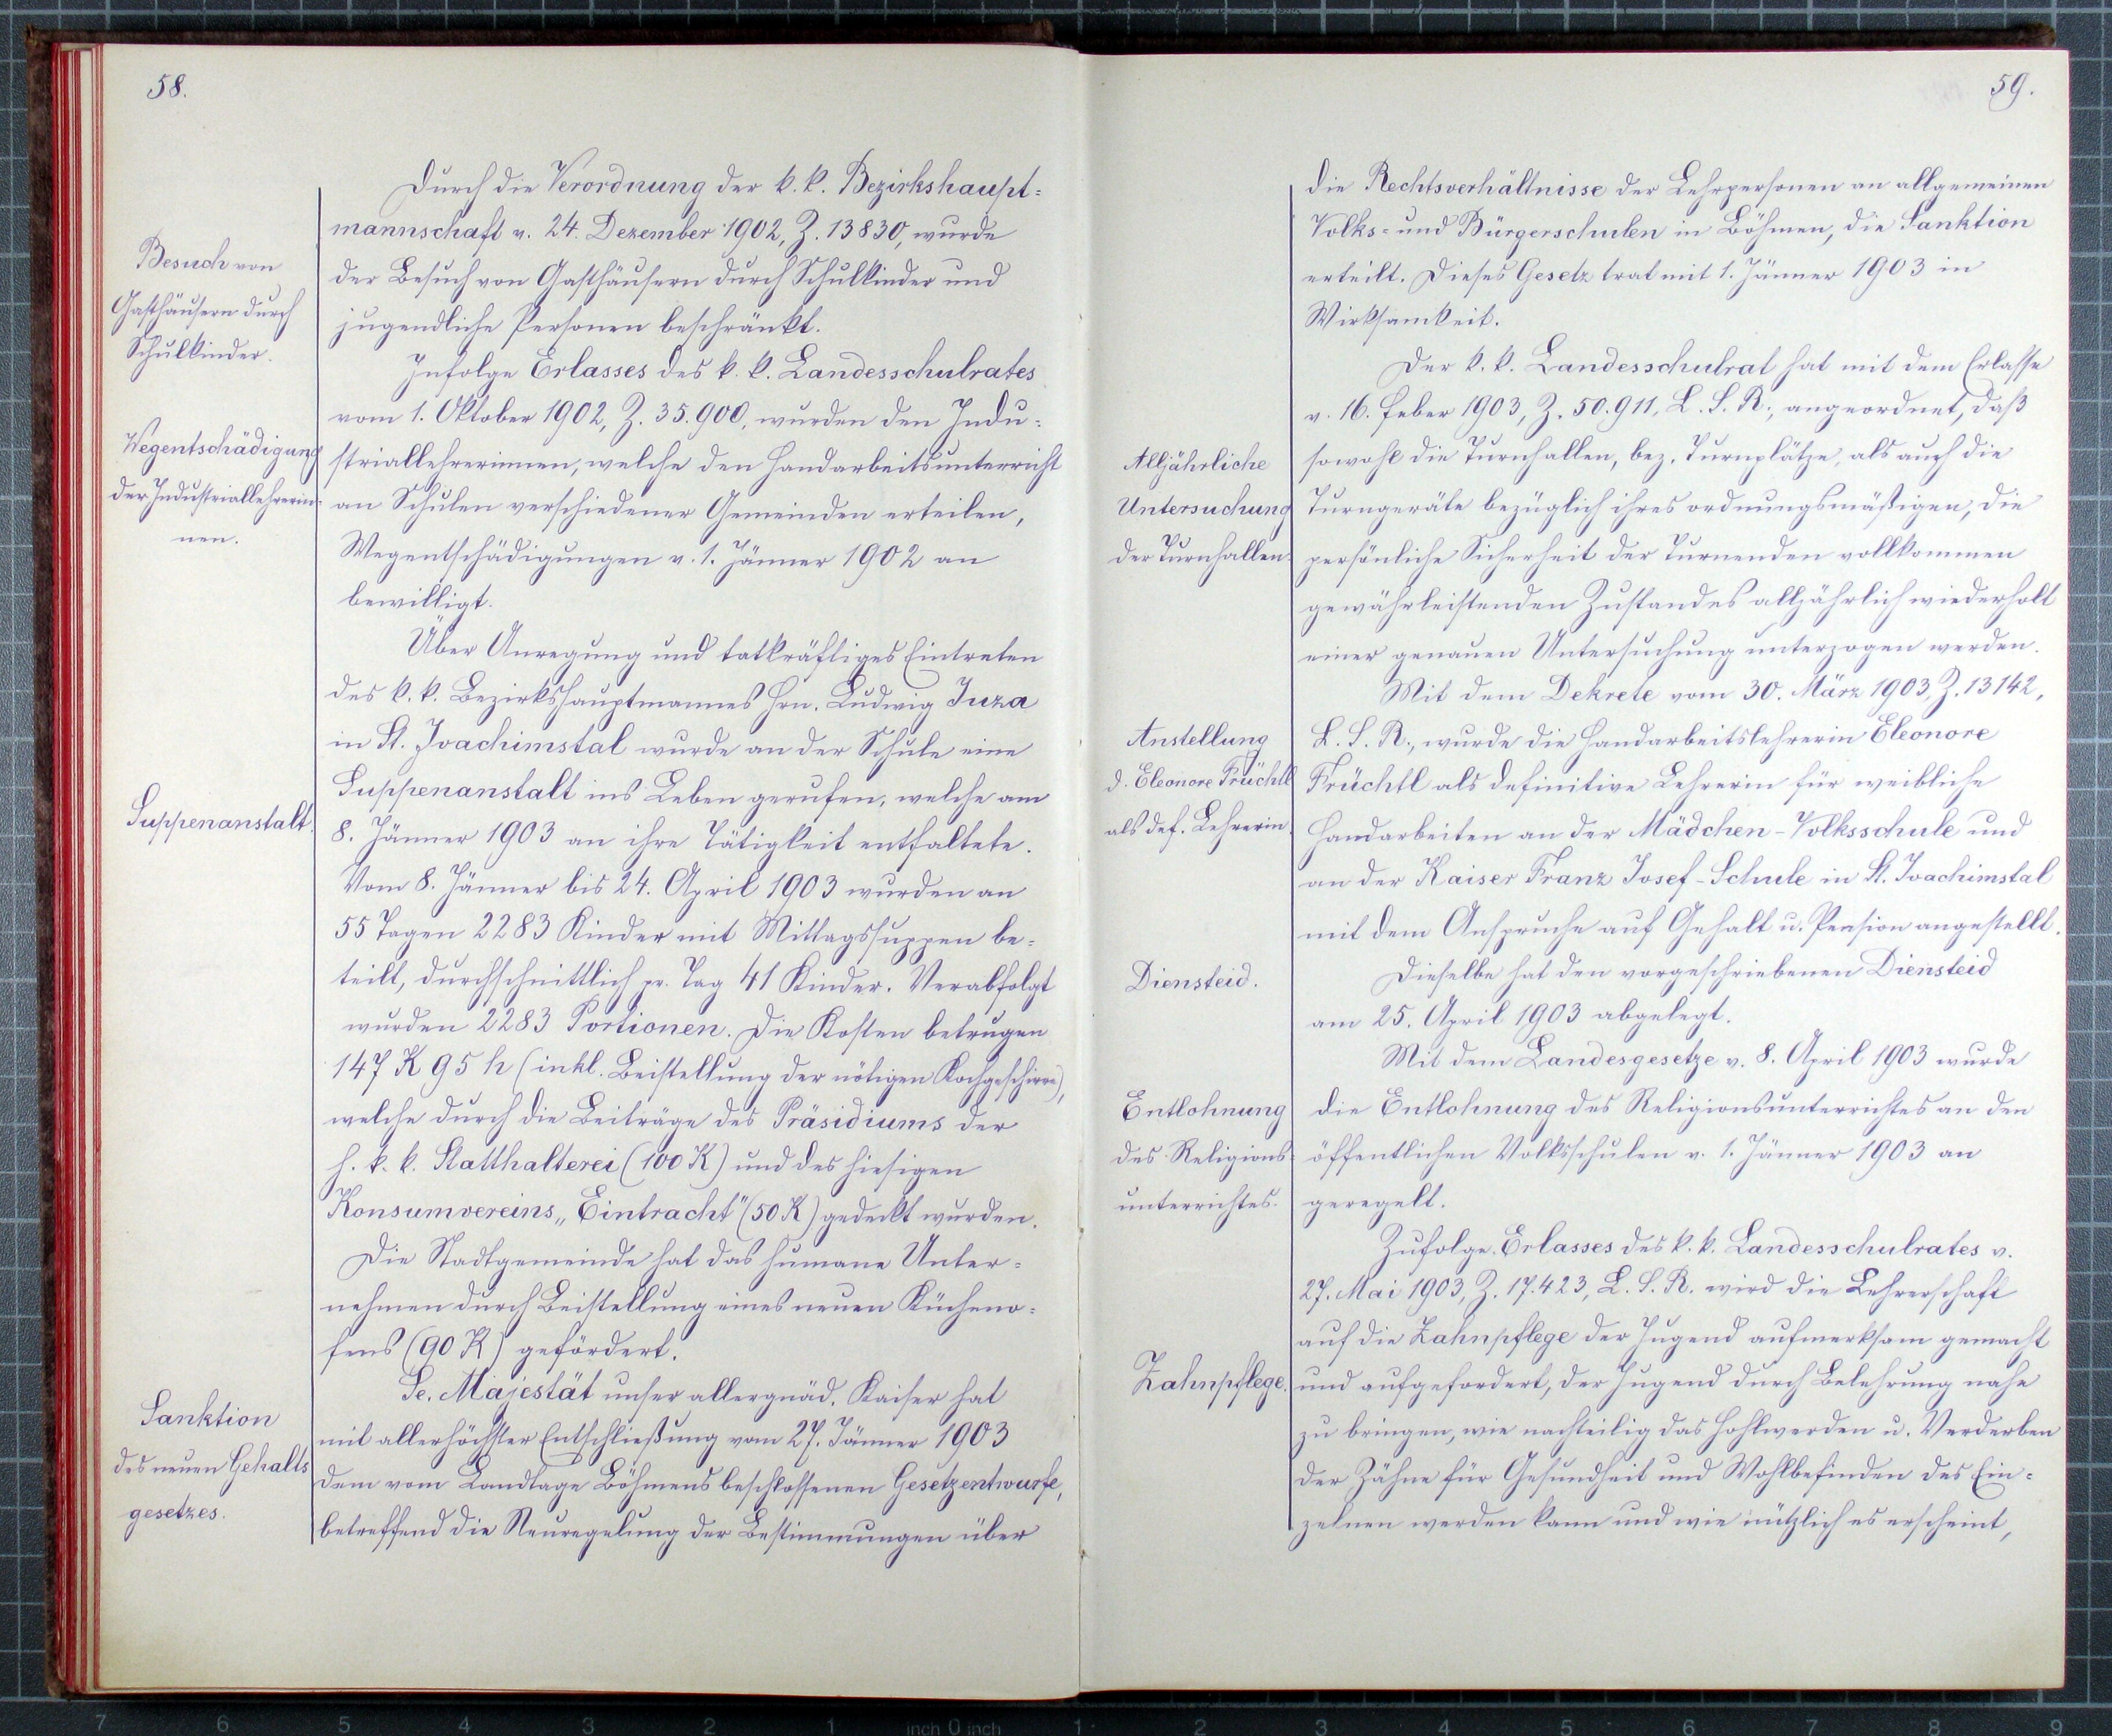 58.
Durch die Verordnung der k. k. Bezirkshaupt=
mannschaft v. 24. Dezember 1902, Z. 13830, wurde
der Besuch von Gasthäusern durch Schulkinder und
jugendliche Personen beschränkt.
Besuch von
Gasthäusern durch
Schulkinder.
Infolge Erlasses des k. k. Landesschulrates
vom 1. Oktober 1902, Z. 35.900, wurden den Indu=
striallehrerinnen, welche den Handarbeitsunterricht
an Schulen verschiedener Gemeinden erteilen,
Wegentschädigungen v. 1. Jänner 1902 an
bewilligt.
Wegentschädigung
der Industriallehrerin=
nen.
Über Anregung und tatkräftiges Eintreten
des k. k. Bezirkshauptmannes Hrn. Ludwig Juza
in St. Joachimstal wurde an der Schule eine
Suppenanstalt ins Leben gerufen, welche am
8. Jänner 1903 an ihre Tätigkeit entfaltete.
Vom 8. Jänner bis 24. April 1903 wurden an
55 Tagen 2283 Kinder mit Mittagssuppen be=
teilt, durchschnittlich pr. Tag 41 Kinder. Verabfolgt
wurden 2283 Portionen. Die Kosten betrugen
147 K 95 h (inkl. Beistellung der nötigen Kochgeschirre),
welche durch die Beiträge des Präsidiums der
h. k. k. Statthalterei (100 K) und des hiesigen
Konsumvereins „Eintracht" (50 K) gedeckt wurden.
Die Stadtgemeinde hat das humane Unter=
nehmen durch Beistellung eines neuen Kücheno=
fens (90 K) gefördert.
Suppenanstalt.
Se. Majestät unser allergnäd. Kaiser hat
mit allerhöchster Entschließung vom 27. Jänner 1903
dem vom Landtage Böhmens beschlossenen Gesetzentwurfe,
betreffend die Neuregelung der Bestimmungen über
Sanktion
des neuen Gehalts
gesetzes.
59.
die Rechtsverhältnisse der Lehrpersonen an allgemeinen
Volks= und Bürgerschulen in Böhmen, die Sanktion
erteilt. Dieses Gesetz trat mit 1. Jänner 1903 in
Wirksamkeit.
Der k. k. Landesschulrat hat mit dem Erlasse
v. 16. Feber 1903, Z. 50.911, L. S. R., angeordnet, daß
sowohl die Turnhallen, bez. Turnplätze, als auch die
Turngeräte bezüglich ihres ordnungsmäßigen, die
persönliche Sicherheit der Turnenden vollkommen
gewährleistenden Zustandes alljährlich wiederholt
einer genauen Untersuchung unterzogen werden.
Alljährliche
Untersuchung
der Turnhallen.
Mit dem Dekrete vom 30. März 1903, Z. 13142,
L. S. R., wurde die Handarbeitslehrerin Eleonore
Früchtl als definitive Lehrerin für weibliche
Handarbeiten an der Mädchen-Volksschule und
an der Kaiser Franz Josef-Schule in St. Joachimstal
mit dem Anspruche auf Gehalt u. Pension angestellt.
Anstellung
d. Eleonore Früchtl
als def. Lehrerin.
Dieselbe hat den vorgeschriebenen Diensteid
am 25. April 1903 abgelegt.
Diensteid.
Mit dem Landesgesetze v. 8. April 1903 wurde
die Entlohnung des Religionsunterrichtes an den
öffentlichen Volksschulen v. 1. Jänner 1903 an
geregelt.
Entlohnung
des Religions=
unterrichtes.
Zufolge Erlasses des k. k. Landesschulrates v.
27. Mai 1903, Z. 17.423, L. S. R. wird die Lehrerschaft
auf die Zahnpflege der Jugend aufmerksam gemacht
und aufgefordert, der Jugend durch Belehrung nahe
zu bringen, wie nachteilig das Hohlwerden u. Verderben
der Zähne für Gesundheit und Wohlbefinden des Ein=
zelnen werden kann und wie nützlich es erscheint,
Zahnpflege.
7 6 5 4 3 2 1 inch 0 inch 1 2 3 4 5 6 7 8 9